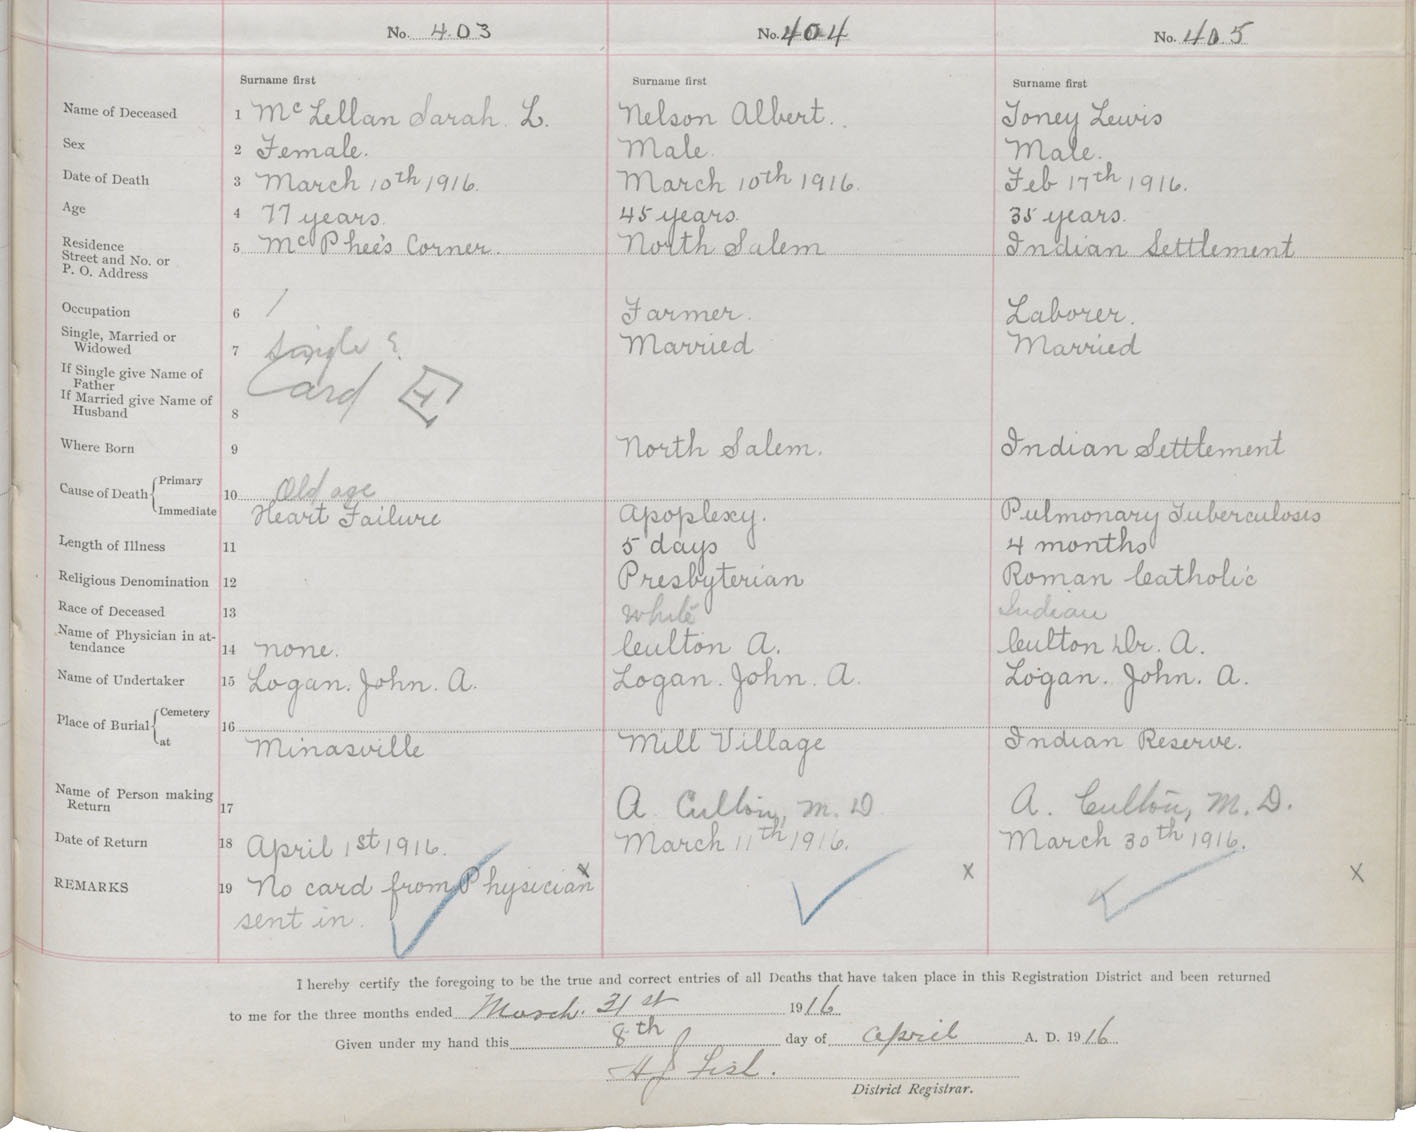 No. 403 No. 404 No. 405
Surname first Surname first Surname first
Name of Deceased 1 McLellan Sarah L. Nelson Albert. Toney Lewis
Sex 2 Female. Male. Male.
Date of Death 3 March 10th 1916. March 10th 1916. Feb 17th 1916.
Age 4 77 years. 45 years. 35 years.
Residence 5 McPhee's Corner. North Salem Indian Settlement
Street and No. or
P. O. Address
Occupation 6 / Farmer. Laborer.
Single, Married or
Widowed 7 Single Married Married
If Single give Name of
Father Card
If Married give Name of
Husband 8
Where Born 9 North Salem. Indian Settlement
Cause of Death Primary 10 Old age
Immediate Heart Failure Apoplexy. Pulmonary Tuberculosis
Length of Illness 11 5 days 4 months
Religious Denomination 12 Presbyterian Roman Catholic
Race of Deceased 13 White Indian
Name of Physician in at-
tendance 14 none. Culton A. Culton Dr. A.
Name of Undertaker 15 Logan. John. A. Logan. John. A. Logan. John. A.
Place of Burial Cemetery 16
at Minasville Mill Village Indian Reserve.
Name of Person making
Return 17 A. Culton, M. D A. Culton, M. D.
Date of Return 18 April 1st 1916. March 11th 1916. March 30th 1916.
REMARKS 19 No card from Physician x x x
sent in.
I hereby certify the foregoing to be the true and correct entries of all Deaths that have taken place in this Registration District and been returned
to me for the three months ended March. 31st 1916
Given under my hand this 8th day of April A. D. 1916
District Registrar.